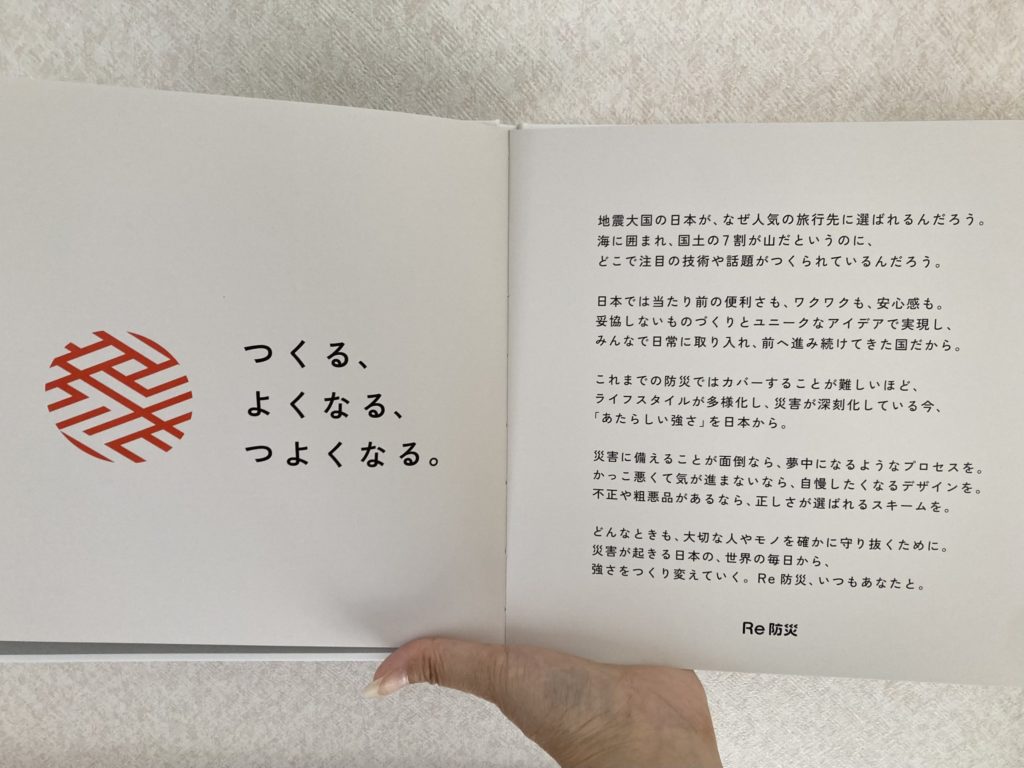 つくる、
よくなる、
つよくなる。
地震大国の日本が、なぜ人気の旅行先に選ばれるんだろう。
海に囲まれ、国土の7割が山だというのに、
どこで注目の技術や話題がつくられているんだろう。
日本では当たり前の便利さも、ワクワクも、安心感も。
妥協しないものづくりとユニークなアイデアで実現し、
みんなで日常に取り入れ、前へ進み続けてきた国だから。
これまでの防災ではカバーすることが難しいほど、
ライフスタイルが多様化し、災害が深刻化している今、
「あたらしい強さ」を日本から。
災害に備えることが面倒なら、夢中になるようなプロセスを。
かっこ悪くて気が進まないなら、自慢したくなるデザインを。
不正や粗悪品があるなら、正しさが選ばれるスキームを。
どんなときも、大切な人やモノを確かに守り抜くために。
災害が起きる日本の、世界の毎日から、
強さをつくり変えていく。Re防災、いつもあなたと。
Re防災